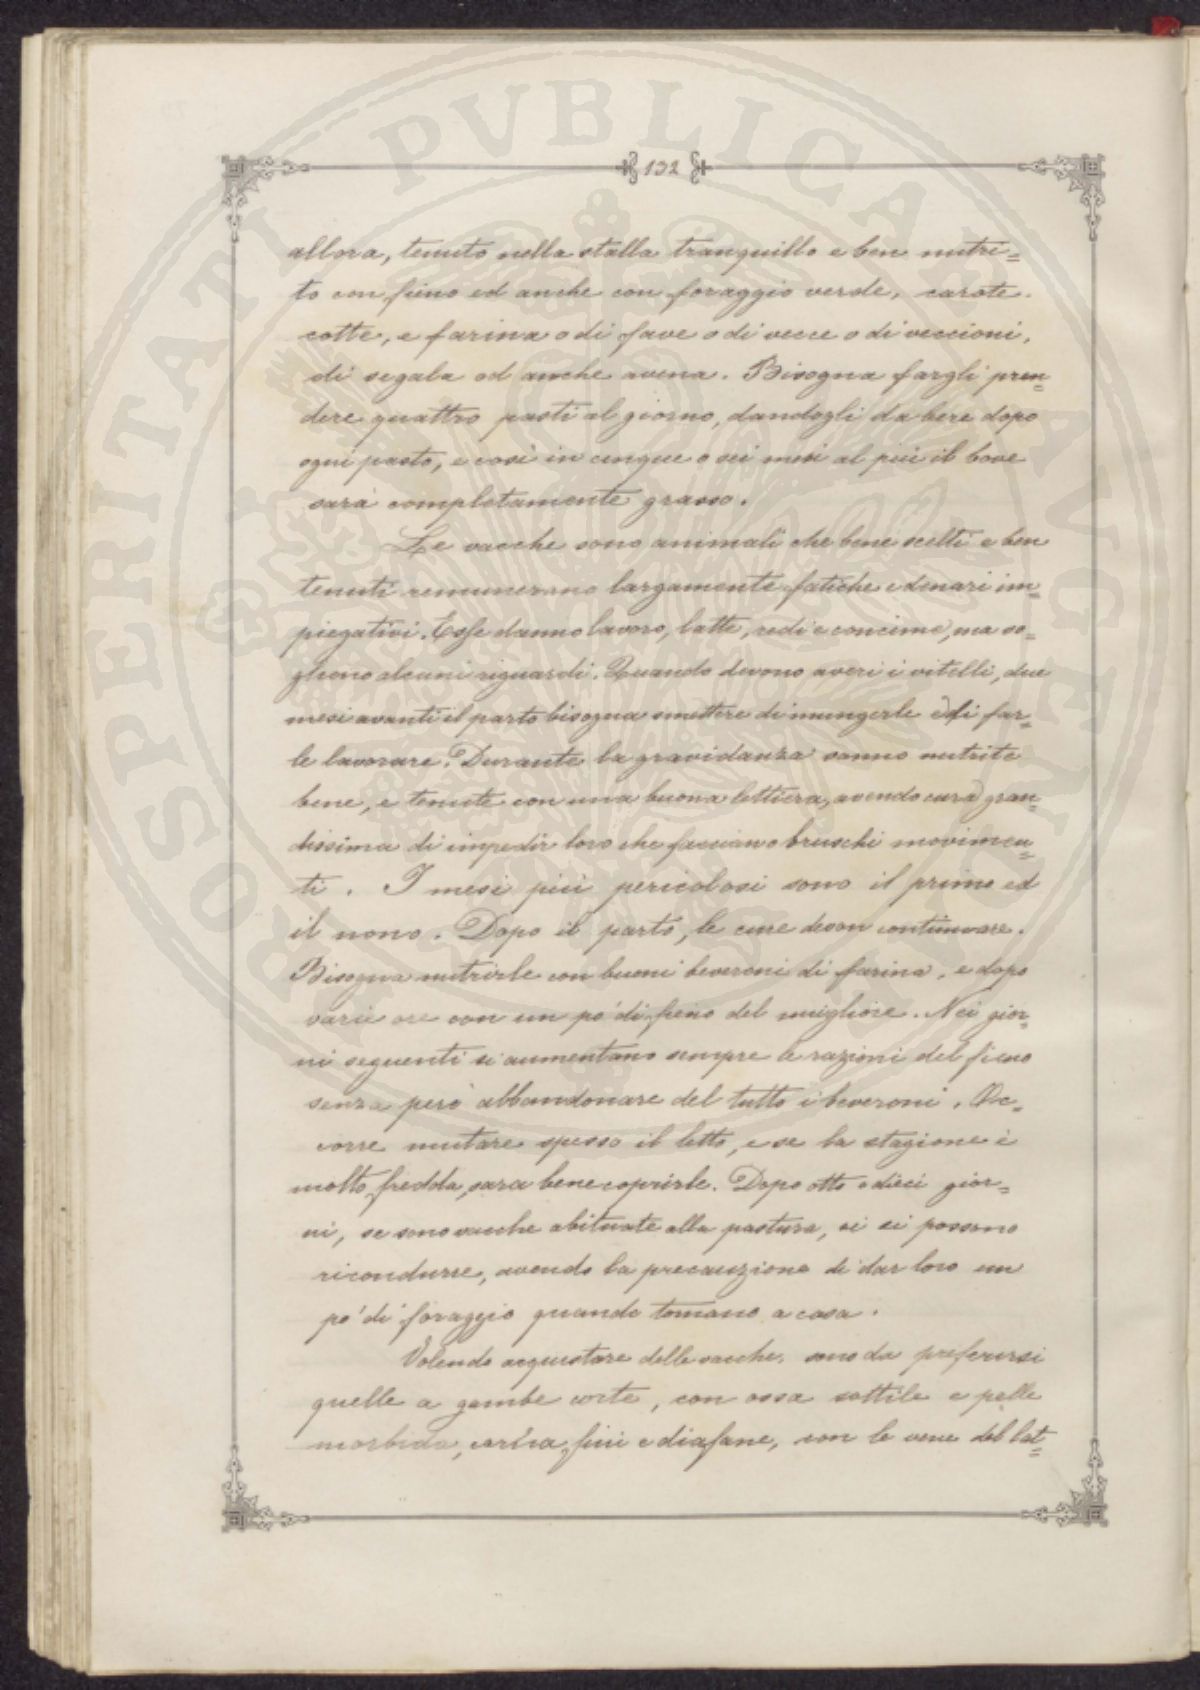 PROSPERITATI PVBLICAE AVGENDAE
132
allora, tenuto nella stalla tranquillo e ben nutri=
to con fieno ed anche con foraggio verde, carote
cotte, e farina o di fave o di vecce o di veccioni,
di segala od anche avena. Bisogna fargli pren=
dere quattro pasti al giorno, dandogli da bere dopo
ogni pasto, e così in cinque o sei mesi al più il bove
sarà completamente grasso.
Le vacche sono animali che bene scelti e ben
tenuti remunerano largamente fatiche e denari im=
piegativi. Esse danno lavoro, latte, redi e concime, ma vo=
gliono alcuni riguardi. Quando devono averi i vitelli, due
mesi avanti il parto bisogna smettere di mungerle e di far=
le lavorare. Durante la gravidanza vanno nutrite
bene, e tenute con una buona lettiera, avendo cura gran=
dissima di impedir loro che facciano bruschi movimen=
ti. I mesi più pericolosi sono il primo ed
il nono. Dopo il parto, le cure devon continuare.
Bisogna nutrirle con buoni beveroni di farina, e dopo
varie ore con un po' di fieno del migliore. Nei gior=
ni seguenti si aumentano sempre le razioni del fieno
senza però abbandonare del tutto i beveroni. Oc=
corre mutare spesso il letto, e se la stagione è
molto fredda, sarà bene coprirle. Dopo otto o dieci gior=
ni, se sono vacche abituate alla pastura, vi si possono
ricondurre, avendo la precauzione di dar loro un
po' di foraggio quando tornano a casa.
Volendo acquistare delle vacche, sono da preferirsi
quelle a gambe corte, con ossa sottile e pelle
morbida, fini e diafane, con le vene del lat=